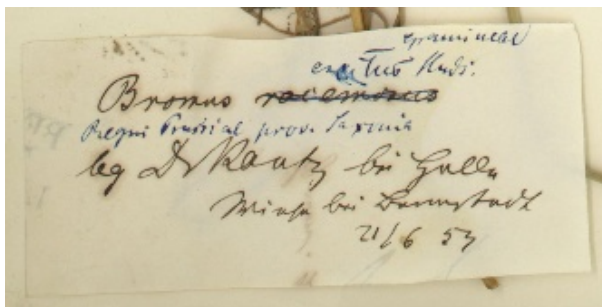 Gramineae
erectus Huds.
Bromus racemosus
Regni Prussiae prov. Saxonia
leg Dr Rautz bei Halle
Wiese bei Dennstedt
21/6 53